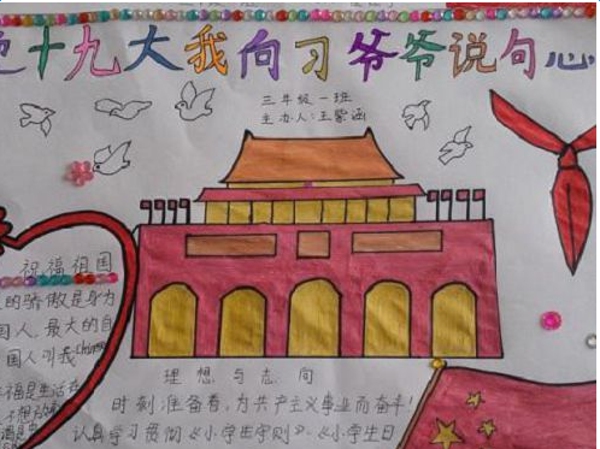 迎十九大我向习爷爷说句心
三年级一班
主办人:王紫涵
祝福祖国
的骄傲是身为
国人,最大的自
国人叫我
福是生活在
理想与志向
时刻准备着,为共产主义事业而奋斗!
认真学习贯彻《小学生守则》、《小学生日